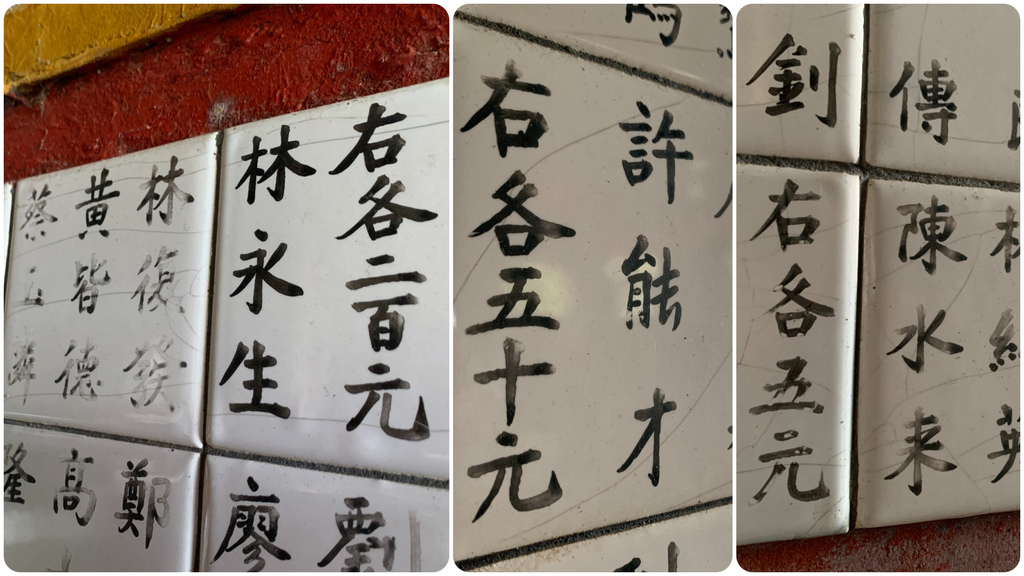 右各二百元
林永生
林復發
黃皆德
蔡玉
劉
廖
鄭
高
隆
右各五十元
許能才
釗
右各五元
傳
陳水來